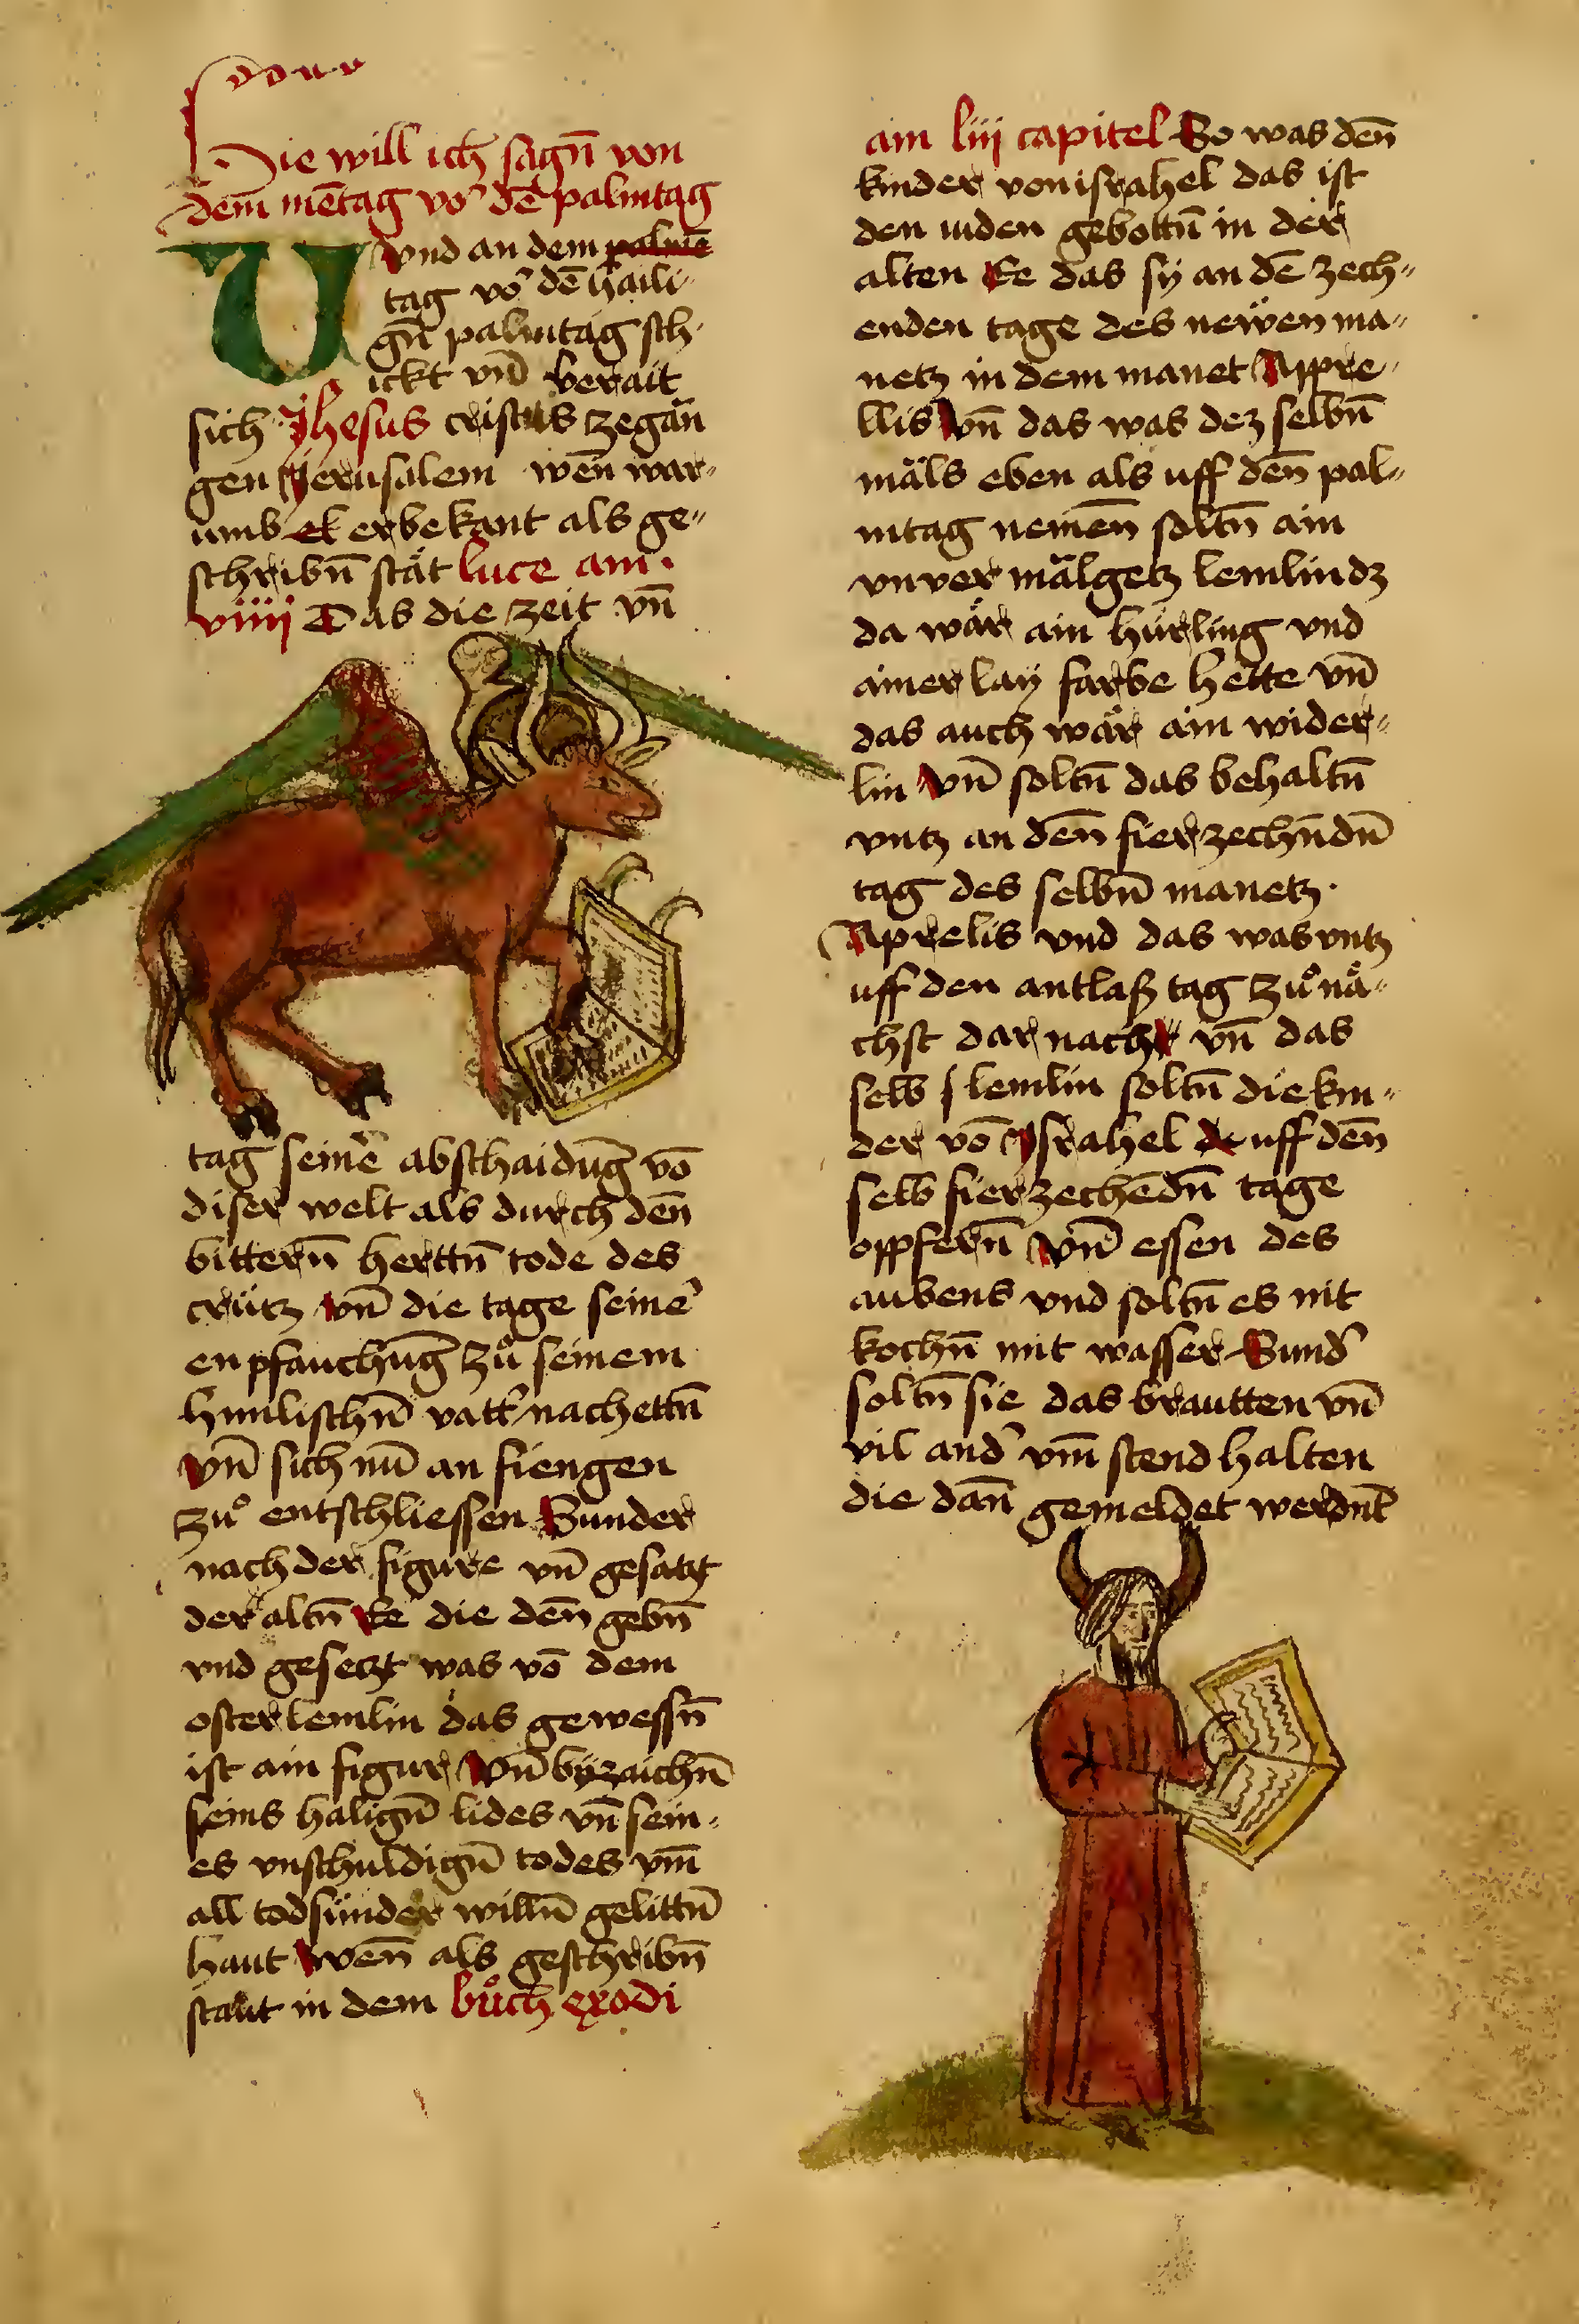 Hie will ich sagn̄ von
dem mētag vo᷑ dē palmtag
Vund an dem palme
tag vo᷑ dē haili-
gn̄ palmtag sch-
ickt vn̄ berait
sich Jhesus cristus ze gān
gen Jerusalem wen̄ war-
umb et er bekant als ge-
schribn̄ stät luce am
viiij Das die zeit vn̄
tag seine᷑ abschaidūg vō
diser welt als durch den̄
bittern̄ herttn̄ tode des
crütz vn̄ die tage seine᷑
enpfauchūg zů seinem
himlischn̄ vatt᷑ nachettn̄
vn̄ sich nū an fiengen
zů entschliessen Sunder
nach der figure vn̄ gesatzt
der altn̄ Ee die den̄ gebn̄
vnd gesetzt was vō dem
osterlemlin das gewessn̄
ist ain figur vn̄ byzaichn̄
seins halign̄ lides vn̄ sein-
es vnschuldign̄ todes vm̄
all todsünder willn̄ gelittn̄
haut wen̄ als geschribn̄
staut in dem bůch exodi
am liij capitel So was den̄
kinder von israhel das ist
den iuden gebottn̄ in der
alten Ee das sy an dē zech-
enden tage des newen ma-
netz in dem manet Appre-
llis vn̄ das was dez selbn̄
mäls eben als uff den̄ pal-
mtag nemen̄ soltn̄ ain
vnvermälgetz lemlin dz
da wär ain hürling vnd
ainerlay farbe hette vn̄
das auch wär ain wider-
lin vn̄ soltn̄ das behaltn̄
vntz an den̄ fierzechn̄dn̄
tag des selbn̄ manetz.
Aprelis vnd das was vntz
uff den antlaß tag zů nä-
chst dar nach vn̄ das
selb lemlin soltn̄ die kin-
der vō Jsrahel uff den̄
selb fierzechēdn̄ tage
oppfern̄ vn̄ essen des
aubens vnd soltn̄ es nit
kochn̄ mit wasser Sund᷑
soltn̄ sie das brautten vn̄
vil and᷑ vm̄stend halten
die dan̄ gemeldet werdn̄t